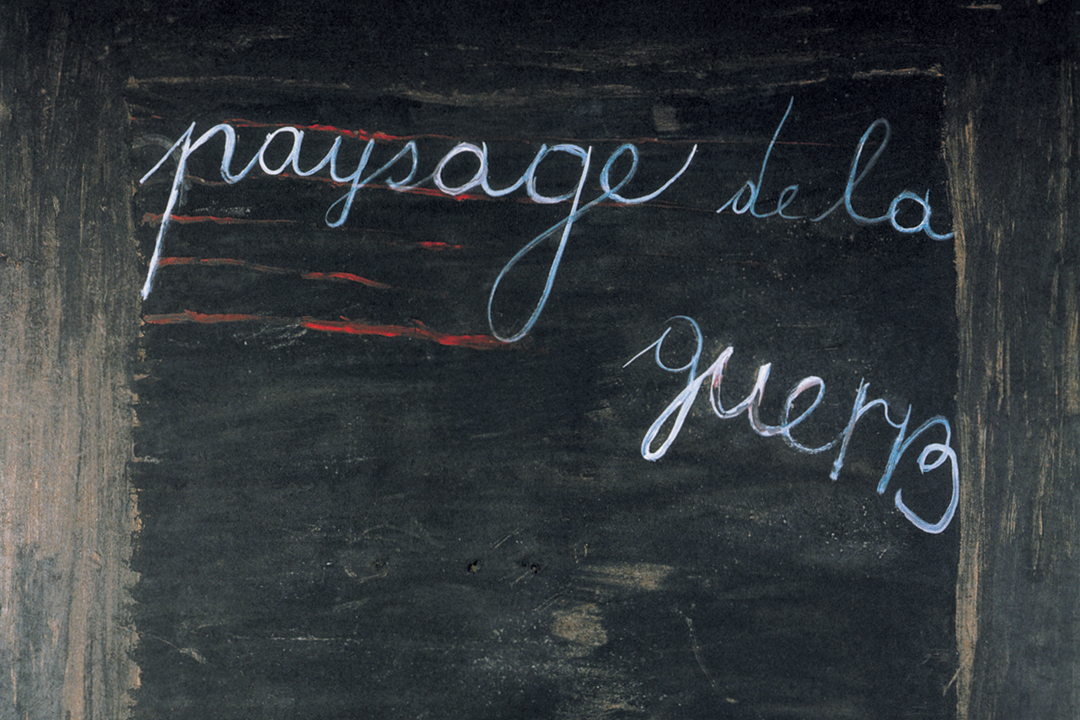 paysage de la
guerre